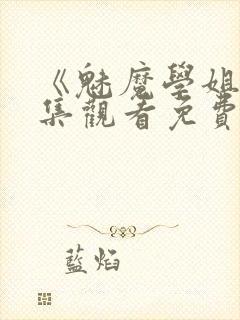 《魅魔學姐
集觀看免費
藍焰